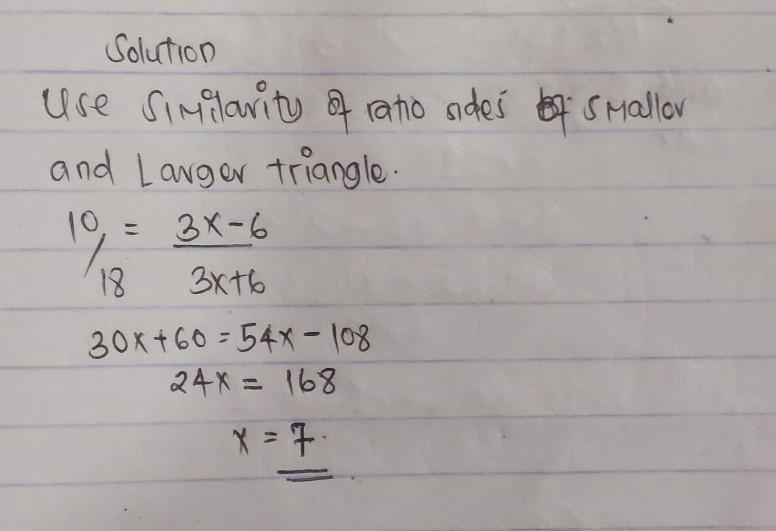 Solution
Use similarity of ratio sides of smaller
and Larger triangle.
10/18 = (3x-6)/(3x+6)
30x+60 = 54x - 108
24x = 168
x = 7.